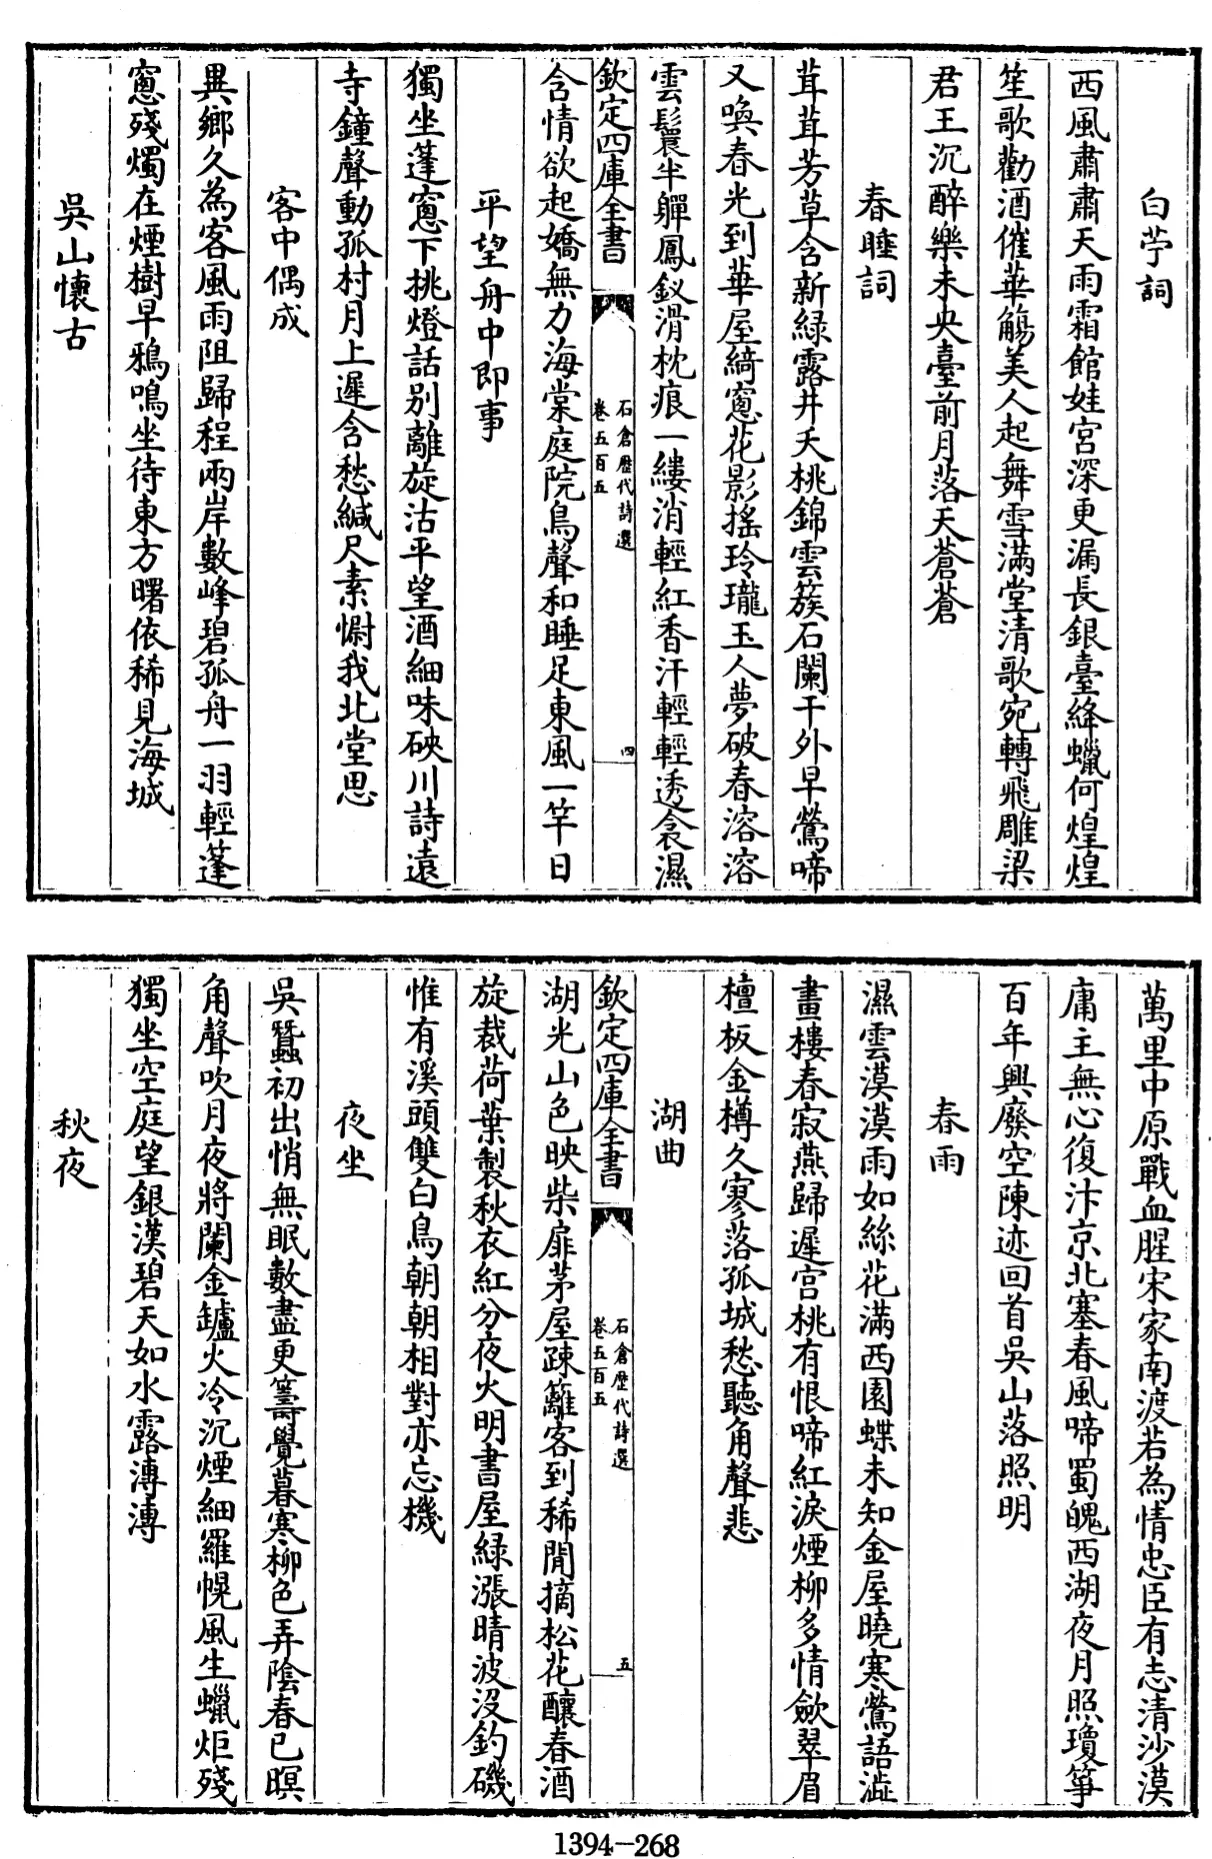 白苧詞
西風肅肅天雨霜館娃宮深更漏長銀臺絳蠟何煌煌
笙歌勸酒催華觴美人起舞雪滿堂清歌宛轉飛雕梁
君王沉醉樂未央臺前月落天蒼蒼
春睡詞
茸茸芳草含新緑露井夭桃錦雲簇石闌干外早鶯啼
又喚春光到華屋綺窻花影搖玲瓏玉人夢破春溶溶
雲鬟半軃鳳釵滑枕痕一縷消輕紅香汗輕輕透衾濕
欽定四庫全書
石倉歷代詩選
卷五百五
四
含情欲起嬌無力海棠庭院鳥聲和睡足東風一竿日
平望舟中即事
獨坐蓬窻下挑燈話別離旋沽平望酒細味硤川詩遠
寺鐘聲動孤村月上遲含愁緘尺素慰我北堂思
客中偶成
異鄉久為客風雨阻歸程兩岸數峰碧孤舟一羽輕蓬
窻殘燭在煙樹早鴉鳴坐待東方曙依稀見海城
吳山懷古
萬里中原戰血腥宋家南渡若為情忠臣有志清沙漠
庸主無心復汴京北塞春風啼蜀魄西湖夜月照瓊箏
百年興廢空陳迹回首吳山落照明
春雨
濕雲漠漠雨如絲花滿西園蝶未知金屋曉寒鶯語澁
畫樓春寂燕歸遲宮桃有恨啼紅淚煙柳多情斂翠眉
檀板金樽久寥落孤城愁聽角聲悲
湖曲
欽定四庫全書
石倉歷代詩選
卷五百五
五
湖光山色映柴扉茅屋疎籬客到稀閒摘松花釀春酒
旋裁荷葉製秋衣紅分夜火明書屋緑漲晴波沒釣磯
惟有溪頭雙白鳥朝朝相對亦忘機
夜坐
吳蠶初出悄無眠數盡更籌覺暮寒柳色弄陰春已暝
角聲吹月夜將闌金罏火冷沉煙細羅幌風生蠟炬殘
獨坐空庭望銀漢碧天如水露漙漙
秋夜
1394-268